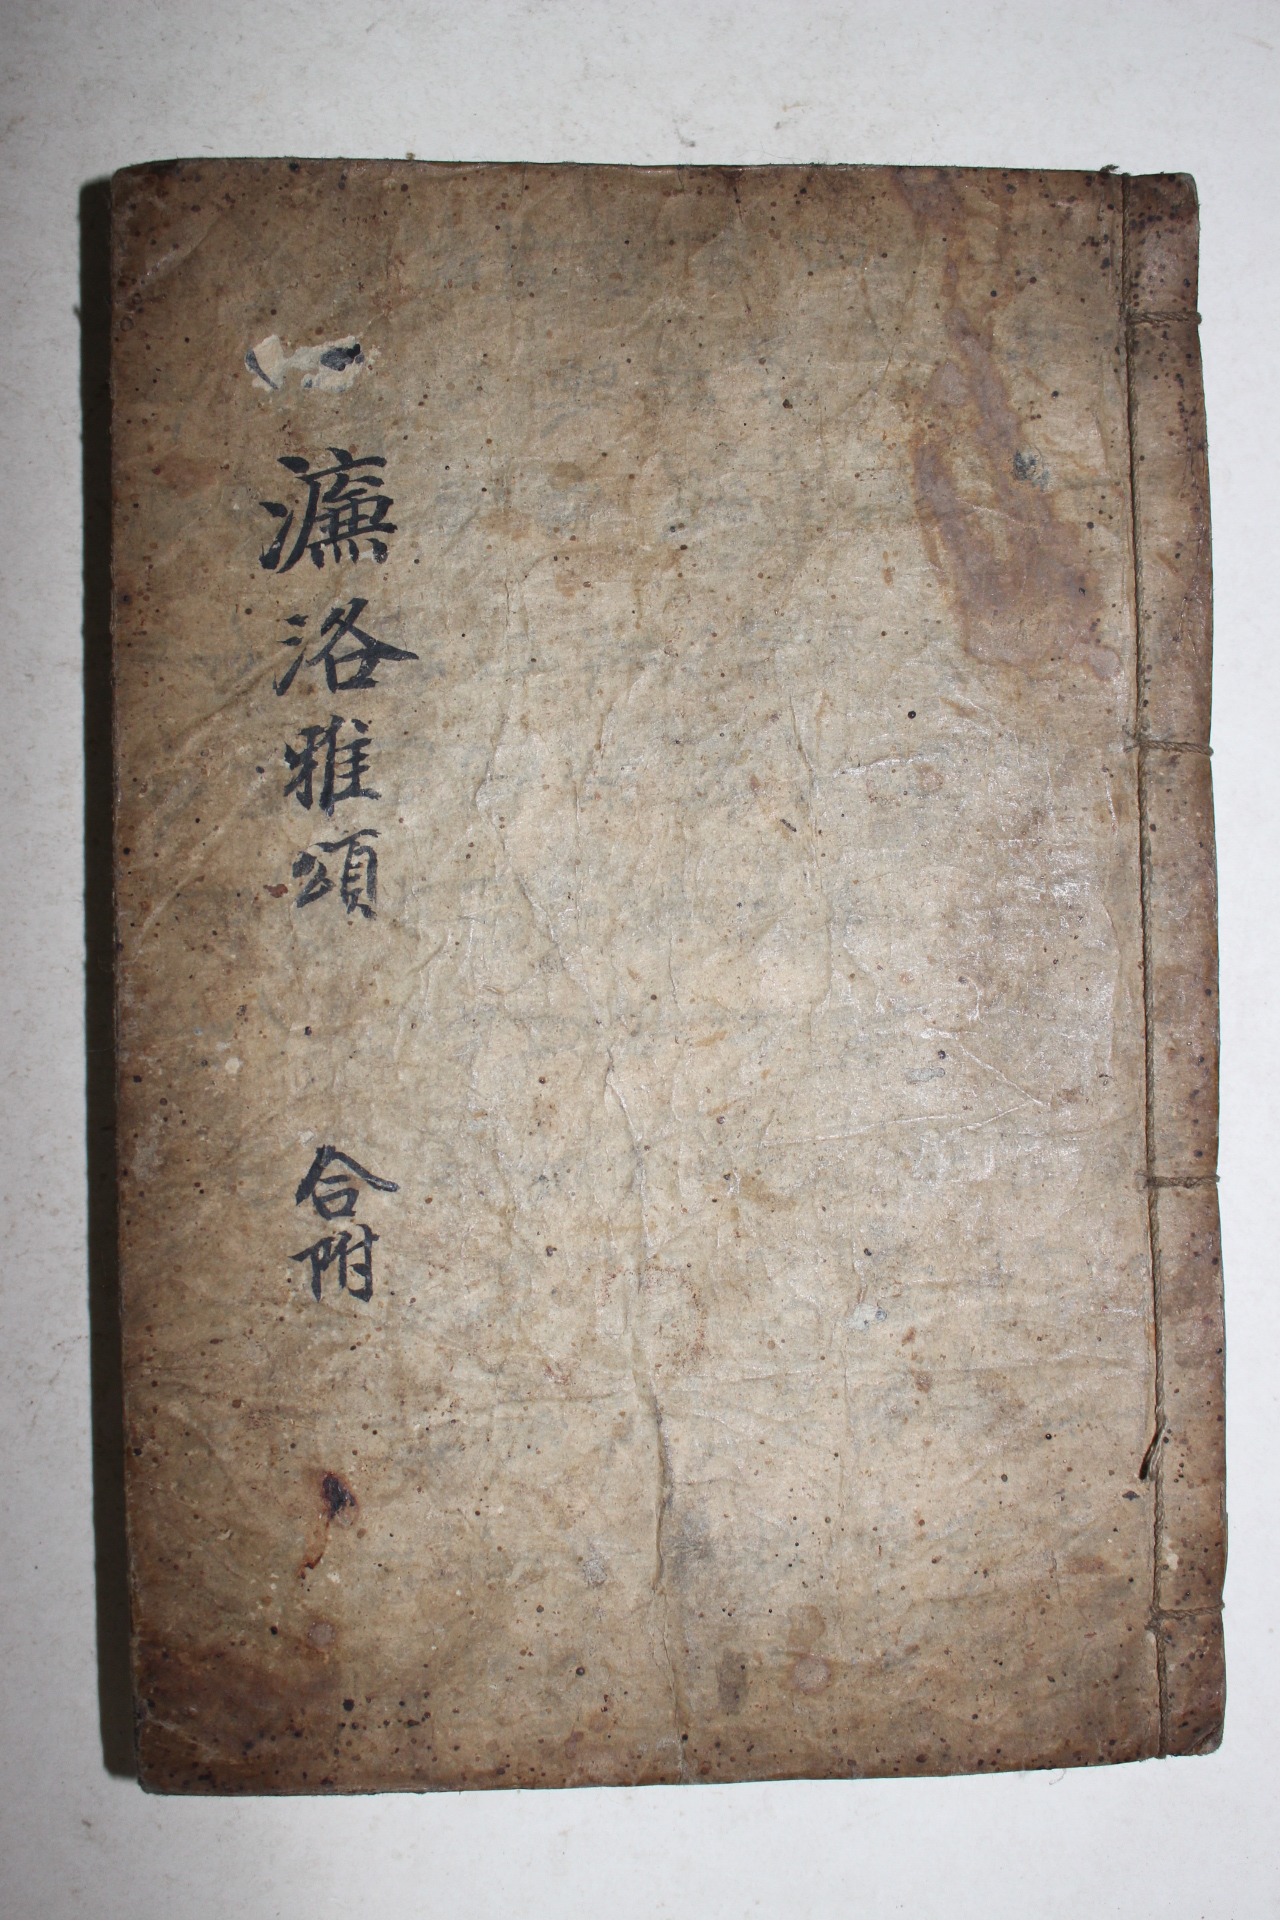 濂洛雅頌
合附